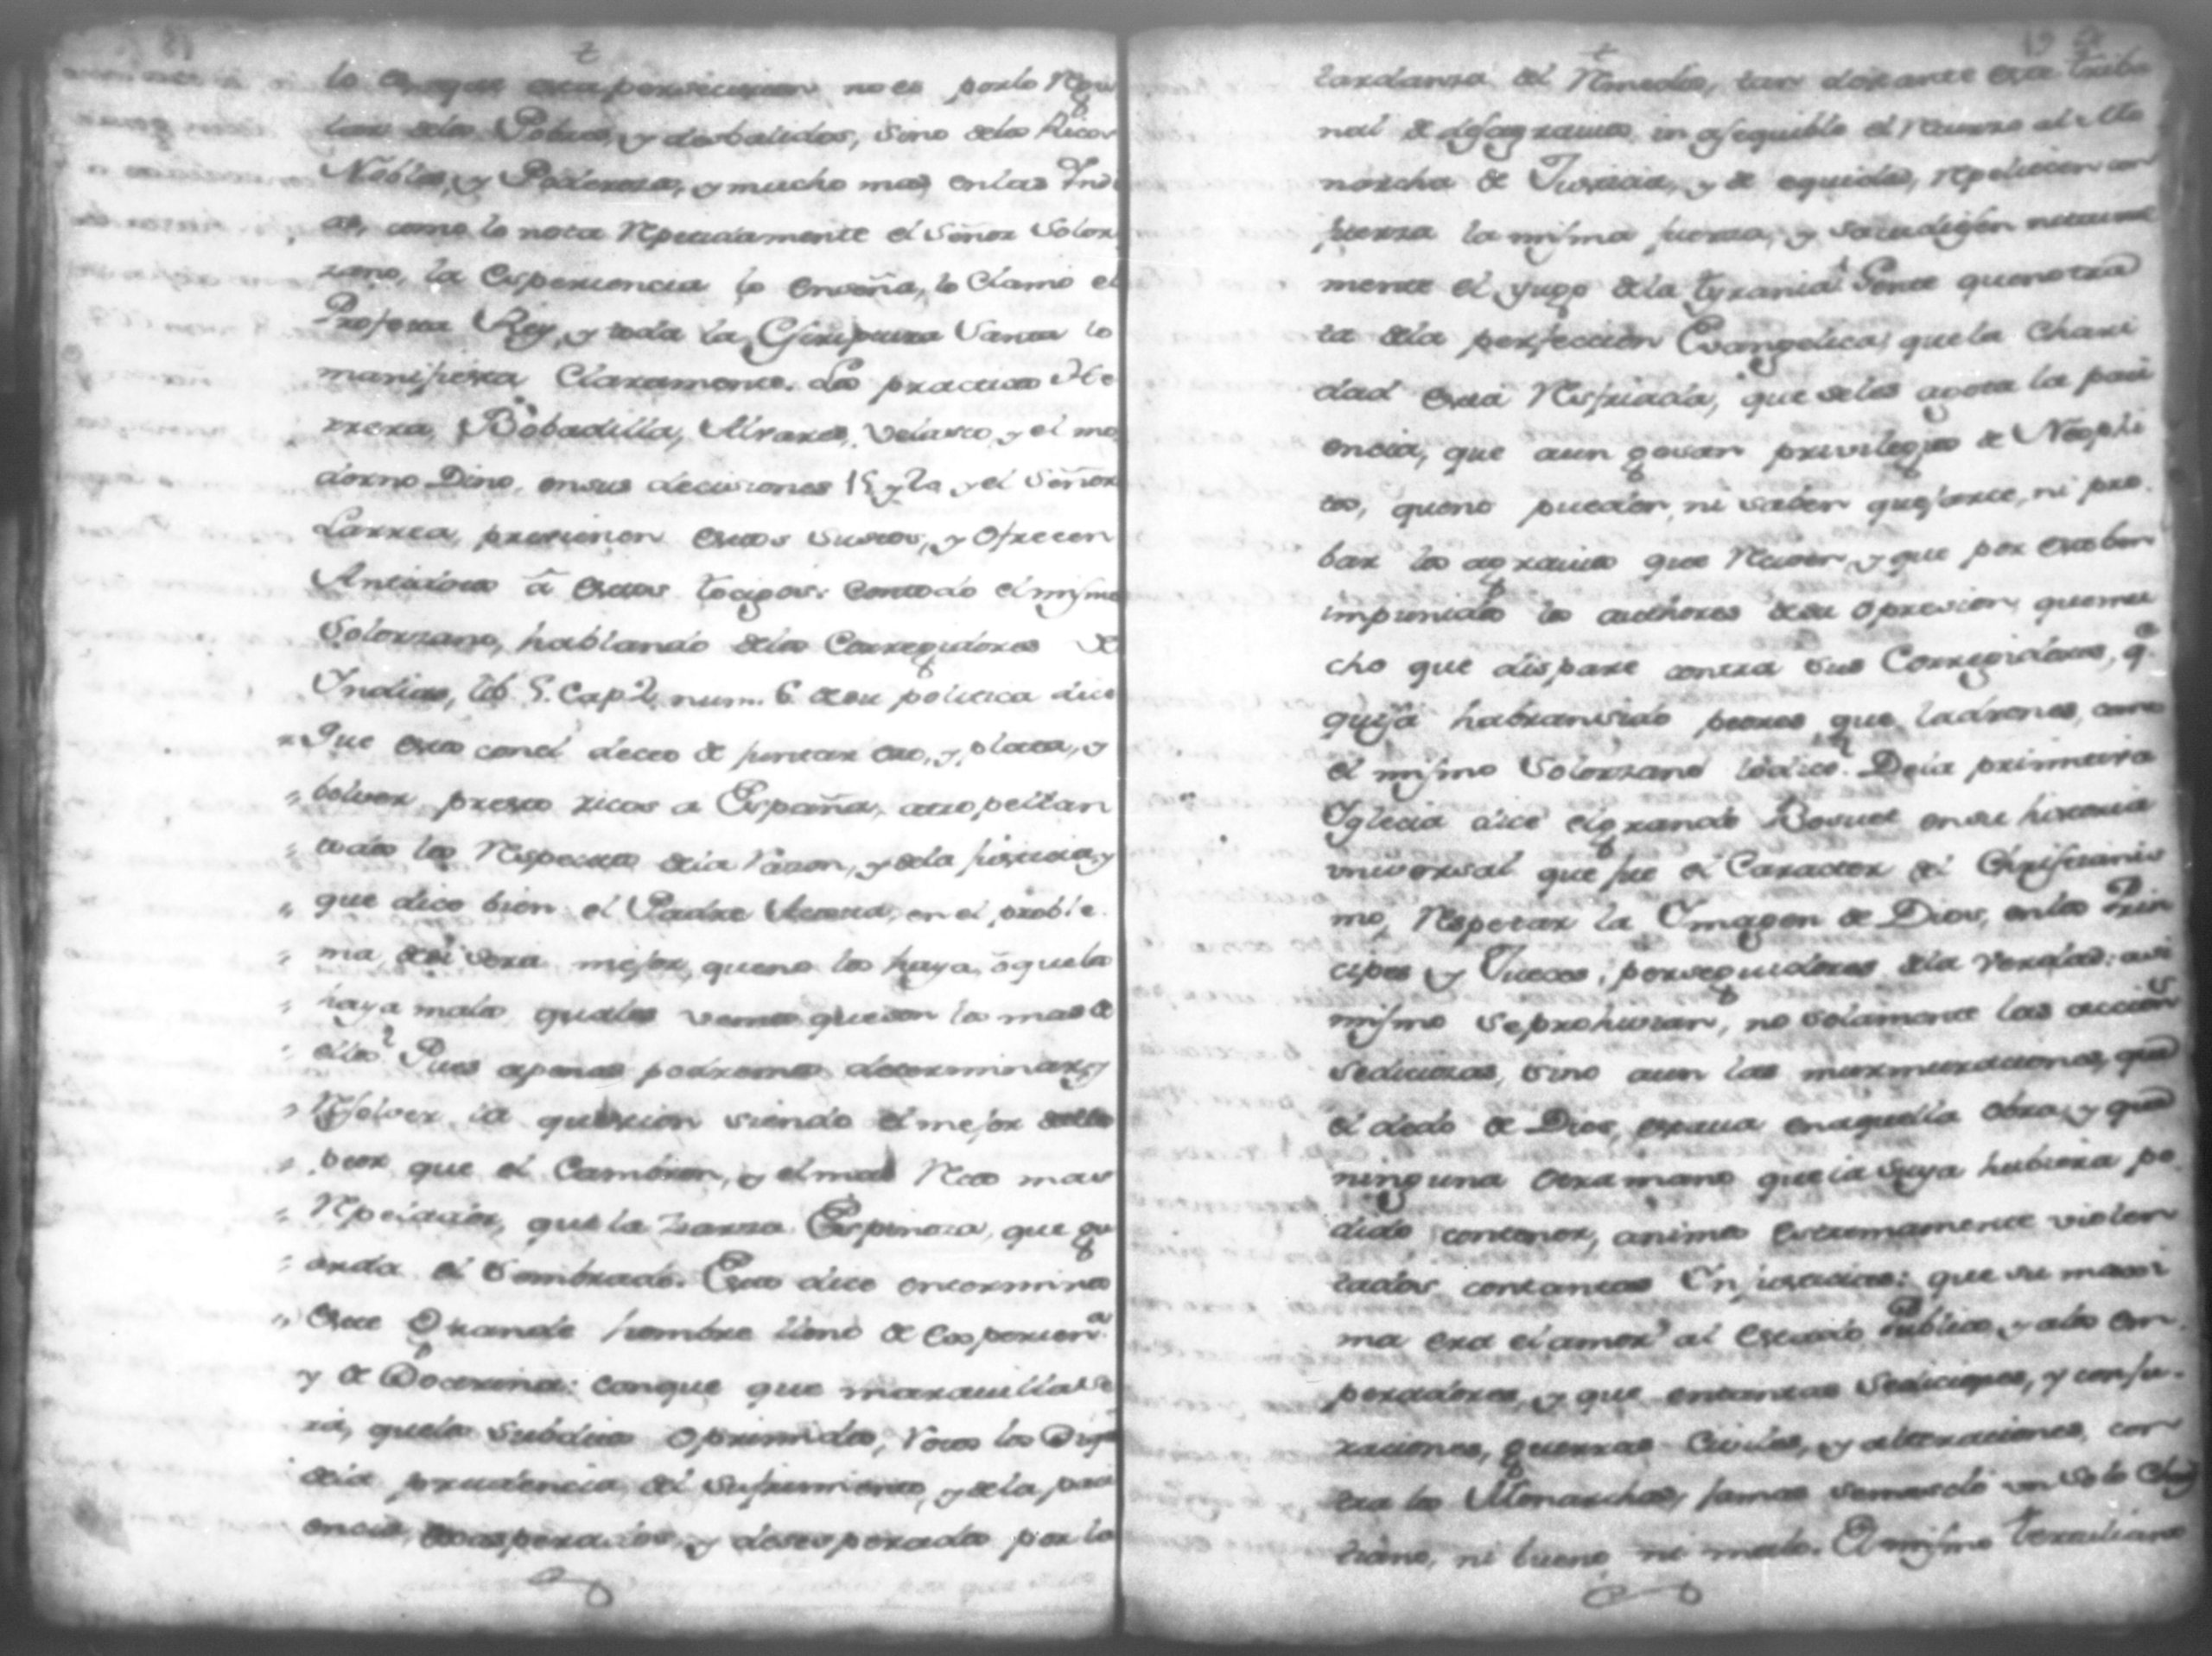 lo que esta persecucion no es por lo Regu
lar de los Pobres, y desbalidos, sino de los Ricos
Nobles, y Poderosos, y mucho mas en las Indi
as, como lo nota Repetidamente el Señor Solor
zano, la Experiencia lo enseña, lo Clamó el
Profeta Rey, y toda la Escriptura Santa lo
manifiesta Claramente. Los practicos He
rrera, Bobadilla, Alvares, Velasco, y el mo
derno Dino, en sus decisiones 15 y 20 y el Señor
Larrea, previenen estos sustos, y Ofrecen
Antidotos â estos tocigos: con todo el mismo
Solorzano, hablando de los Corregidores de
Indias, lib. 5. Cap 2 num. 6 de su politica dice
Que estos con el deceo de juntar oro, y plata, y
bolver presto ricos a España, atropellan
todos los Respectos de la razon, y de la justicia, y
que dice bien el Padre Acosta, en el proble
ma, de si sera mejor, que no los haya, ô que los
haya malos quales vemos que son los mas de
ellos? Pues apenas podremos determinar, y
Resolver la question siendo el mejor de ellos
peor que el Cambron, y el mas Recto mas
que la Zarza Espinosa, que gu
arda el sembrado. Esto dice en terminos
este Grande hombre lleno de Esperienª
y de Doctrina: conque que maravilla se
rá, que los subditos oprimidos, rotos los Diques
de la prudencia del sufrimiento, y de la paci
encia, exasperados, y desesperados por la
tardanza del Remedio, tan distante este tribu
nal de desagravios in asequible el Recurso al Mo
narcha de Justicia, y de equidad, Repelicen con
fuerza la misma fuerza, y sacudiesen
mente el yugo de la tyrania? Gente que no tra
ta de la perfeccion Evangelica, que la Chari
dad está Resfriada, que se les agota la paci
encia, que aun gosan privilegios de Neophi
tos, que no pueden, ni saben quejarce, ni pro
bar los agravios que Reciven y que por
impunidos los authores de su opresion, que mu
cho que dispare contra sus Corregidores, q.
quisá habran sido peores que ladrones, como
el mismo Solorzano lo dice? De la primitiva
Iglecia dice el grande Bosuet en su historia
universal que fue el Caracter del Christianis
mo, Respetar la Imagen de Dios, en los Prin
cipes y Jueces, perseguidores de la verdad: asi
mismo se prohivian, no solamente las accions
sediciosas, sino aun las murmuraciones, que
el dedo de Dios, estava en aquella obra, y que
ninguna otra mano que la suya hubiera po
dido contener, animos extremamente violen
tados con tantas Injusticias: que su maxi
ma era el amor al estado Publico, y a los Em
peradores, y que en tantas sediciones, y conju
raciones, guerras Civiles, y alteraciones, con
tra los Monarchas, jamas se mescló un solo Chris
tiano, ni bueno, ni malo. El mismo tertuliano